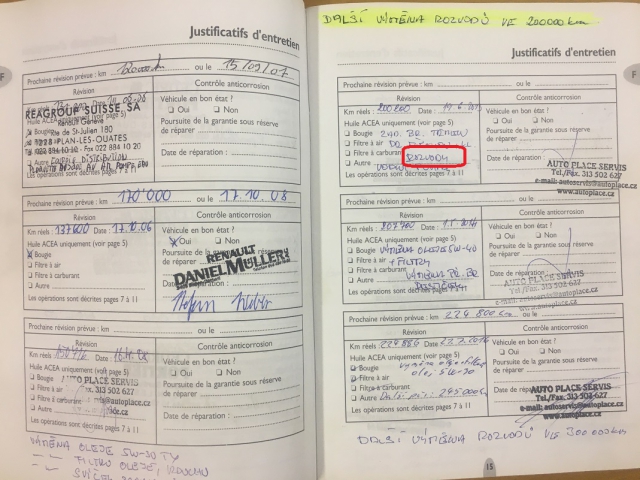 Justificatifs d'entretien
F
Prochaine révision prévue : km 120000 ou le 15/09/07
Révision
Contrôle anticorrosion
REAGROUP SUISSE, SA
Renault Genève
Rue de St-Julien 180
1228 PLAN-LES-OUATES
Véhicule en bon état ?
Oui Non
Poursuite de la garantie sous réserve
de réparer
Date de réparation :
Prochaine révision prévue : km 170'000 ou le 17.10.08
Révision
Contrôle anticorrosion
Km réels : 137600 Date 17.10.06
Huile ACEA uniquement (voir page 5)
Bougie
Filtre à air
Filtre à carburant
Autre
Les opérations sont décrites pages 7 à 11
Véhicule en bon état ?
Oui Non
RENAULT
DANIEL MÜLLER
Prochaine révision prévue : km ou le
Révision
Contrôle anticorrosion
Km réels Date
Huile ACEA uniquement (voir page 5)
Bougie
Filtre à air
Filtre à carburant
Autre
AUTO PLACE SERVIS
Les opérations sont décrites pages 7 à 11
Véhicule en bon état ?
Oui Non
Poursuite de la garantie sous réserve
de réparer
Date de réparation :
VÝMĚNA OLEJE 5W-30
FILTRU OLEJE,
DALŠÍ VÝMĚNA ROZVODŮ VE 200000 km
Justificatifs d'entretien
F
Prochaine révision prévue : km ou le
Révision
Contrôle anticorrosion
Km réels : 200200 Date
Huile ACEA uniquement (voir page 5)
Bougie
Filtre à air
Filtre à carburant
Autre ROZVODY
Les opérations sont décrites pages 7 à 11
Véhicule en bon état ?
Oui Non
Poursuite de la garantie sous réserve
de réparer
Date de réparation :
AUTO PLACE SERVIS
Tel./Fax. 313 502 627
e-mail: autoservis@autoplace.cz
www.autoplace.cz
Prochaine révision prévue : km ou le
Révision
Contrôle anticorrosion
Km réels : 207700 Date
Huile ACEA uniquement (voir page 5)
Bougie VÝMĚNA OLEJE 5W-40
Filtre à air + FILTRY
Filtre à carburant
Autre VÝMĚNA
Les opérations sont décrites pages 7 à 11
Véhicule en bon état ?
Oui Non
Poursuite de la garantie sous réserve
de réparer
Date de réparation
AUTO PLACE SERVIS
Tel./Fax. 313 502 627
e-mail: autoservis@autoplace.cz
www.autoplace.cz
Prochaine révision prévue : km ou le 224 800 km
Révision
Contrôle anticorrosion
Km réels : 224886 Date
Huile ACEA uniquement (voir page 5)
Bougie
Filtre à air
Filtre à carburant
Autre
Les opérations sont décrites pages 7 à 11
Véhicule en bon état ?
Oui Non
Poursuite de la garantie sous réserve
de réparer
Date de réparation
AUTO PLACE SERVIS
Tel./Fax. 313 502 627
e-mail: autoservis@autoplace.cz
www.autoplace.cz
DALŠÍ VÝMĚNA ROZVODŮ VE 300000 km
15